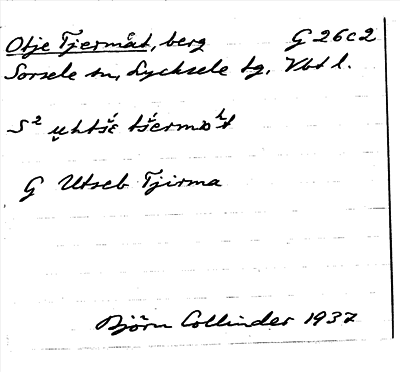 Otje Tjermåt, berg G 26c2
Sorsele sn, Lycksele tg, Vbtl.
G Utseb Tjirma
Björn Collinder 1937